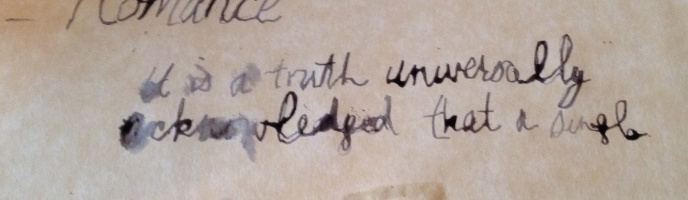 - Romance
it is a truth universally
acknowledged that a single